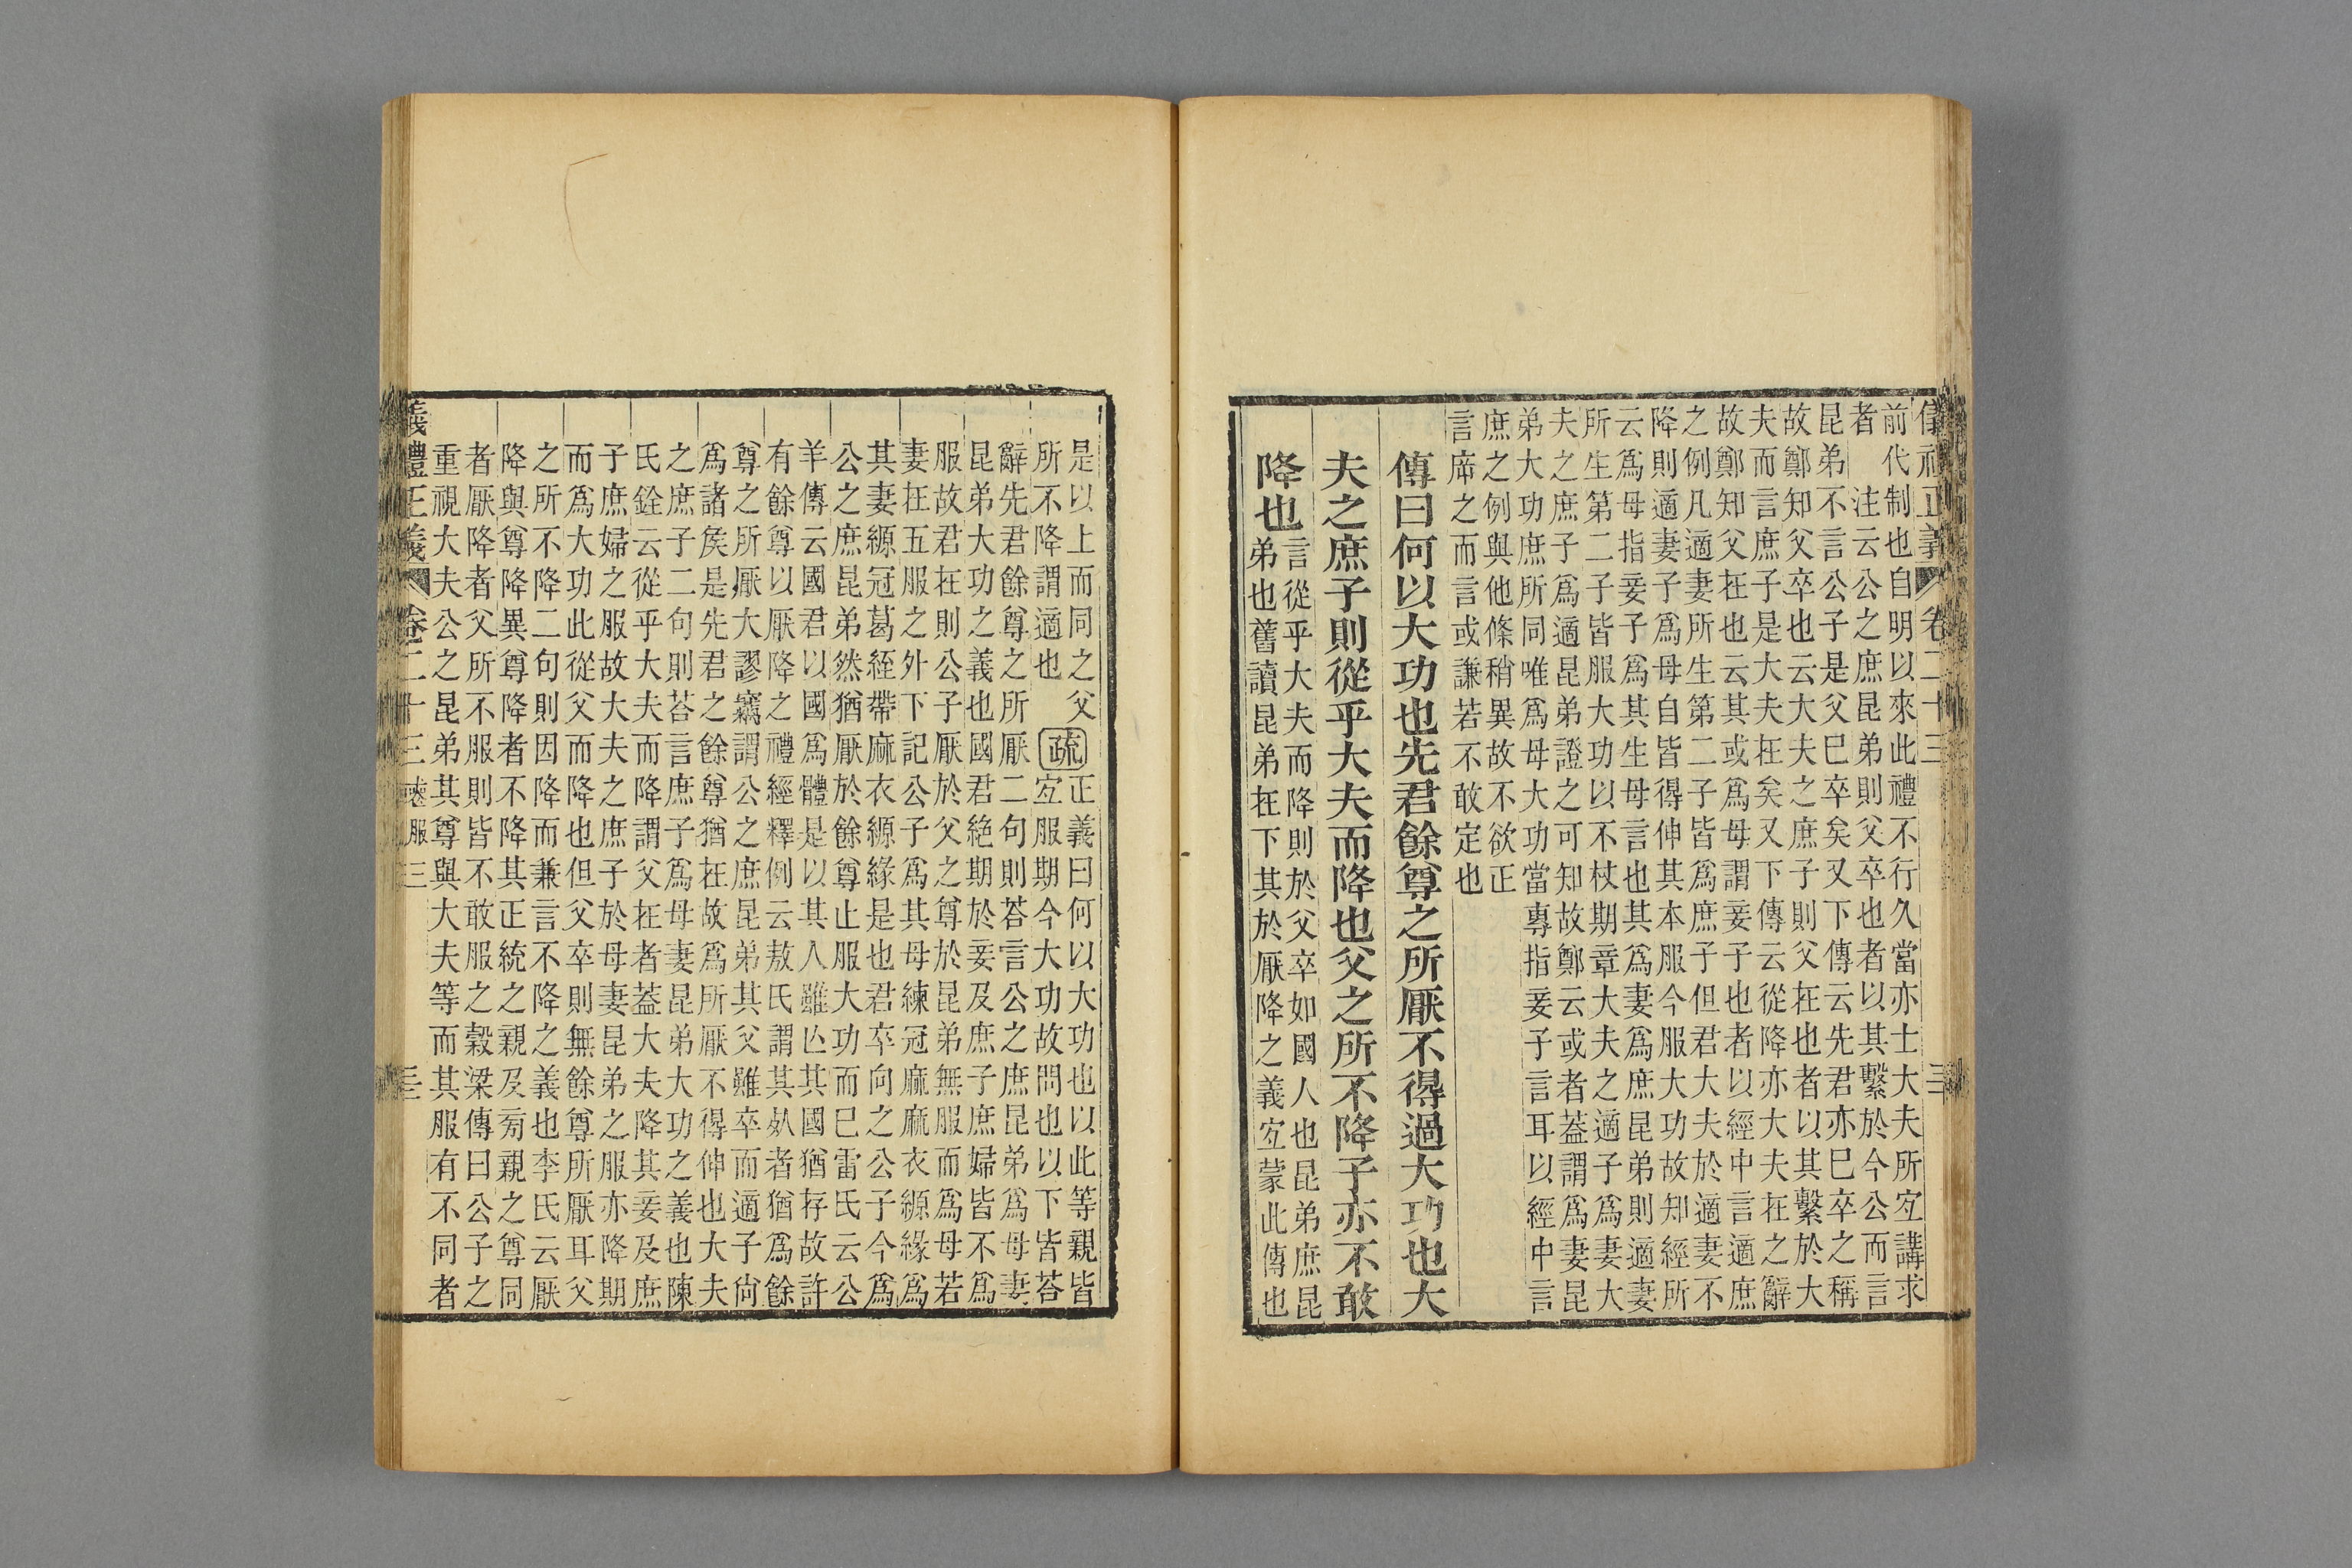 前代制也自明以來此禮不行久當亦士大夫所宐講求
者　注云公之庶昆弟則父卒也者以其繫於今公而言
昆弟不言公子是父巳卒矣又下傳云先君亦巳卒之稱
故鄭知父卒也云大夫之庶子則父在也者以其繫於大
夫而言庶子是大夫在矣又下傳云從降亦大夫在之辭
故鄭知父在也云其或爲母謂妾子也者以經中言適庶
之例凡適妻所生第二子皆爲庶子但君大夫於適妻不
降則適妻子爲母自皆得伸其本服今服大功故知經所
云爲母指妾子爲其生母言也其爲妻爲庶昆弟則適妻
所生第二子皆服大功以不杖期章大夫之適子爲妻大
夫之庶子爲適昆弟證之可知故鄭云或者葢謂爲妻昆
弟大功庶所同唯爲母大功當專指妾子言耳以經中言
庶之例與他條稍異故不欲正
言席之而言或謙若不敢定也
傳曰何以大功也先君餘尊之所厭不得過大功也大
夫之庶子則從乎大夫而降也父之所不降子亦不敢
降也
言從乎大夫而降則於父卒如國人也昆弟庶昆
弟也舊讀昆弟在下其於厭降之義宐蒙此傳也
是以上而同之父
所不降謂適也
疏
正義曰何以大功也以此等親皆
宐服期今大功故問也以下皆荅
辭先君餘尊之所厭二句則荅言公之庶昆弟爲母妻
昆弟大功之義也國君絕期於妾及庶子庶婦皆不爲
服故君在則公子厭於父之尊於昆弟無服而爲母若
妻在五服之外下記公子爲其母練冠麻麻衣縓緣爲
其妻縓冠葛絰帶麻衣縓緣是也君卒向之公子今爲
公之庶昆弟然猶厭於餘尊止服大功而巳雷氏云公
羊傳云國君以國爲體是以其人雖亾其國猶存故許
有餘尊以厭降之禮經釋例云敖氏謂其㚈者猶爲餘
尊之所厭大謬竊謂公之庶昆弟其父雖卒而適子尙
爲諸矦是先君之餘尊猶在故爲所厭不得伸也大夫
之庶子二句則荅言庶子爲母妻昆弟大功之義也陳
氏銓云從乎大夫而降謂父在者葢大夫降其妾及庶
子庶婦之服故大夫之庶子於母妻昆弟之服亦降期
而爲大功此從父而降也但父卒則無餘尊所厭耳父
之所不降二句則因降而兼言不降之義也李氏云厭
降與尊降異尊降者不降其正統之親及旁親之尊同
者厭降者父所不服則皆不敢服之穀梁傳曰公子之
重視大夫公之昆弟其尊與大夫等而其服有不同者
儀禮正義　卷二十三　喪服三